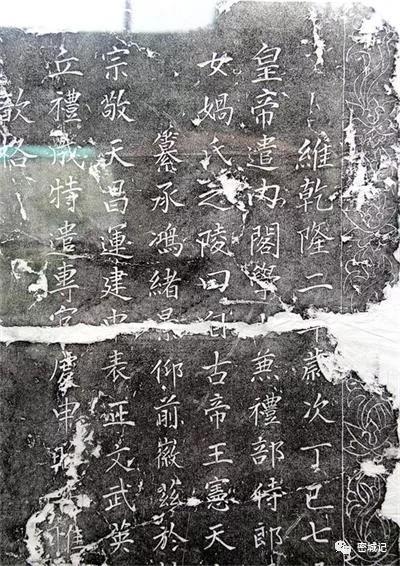 維乾隆二年歲次丁巳七
皇帝遣内閣學士兼禮部侍郎
女媧氏之陵曰自古帝王憲天
纂承鴻緒景仰前徽茲於
宗敬天昌運建中表正文武英
立禮成特遣專官虔申昭告惟
歆格
密城记